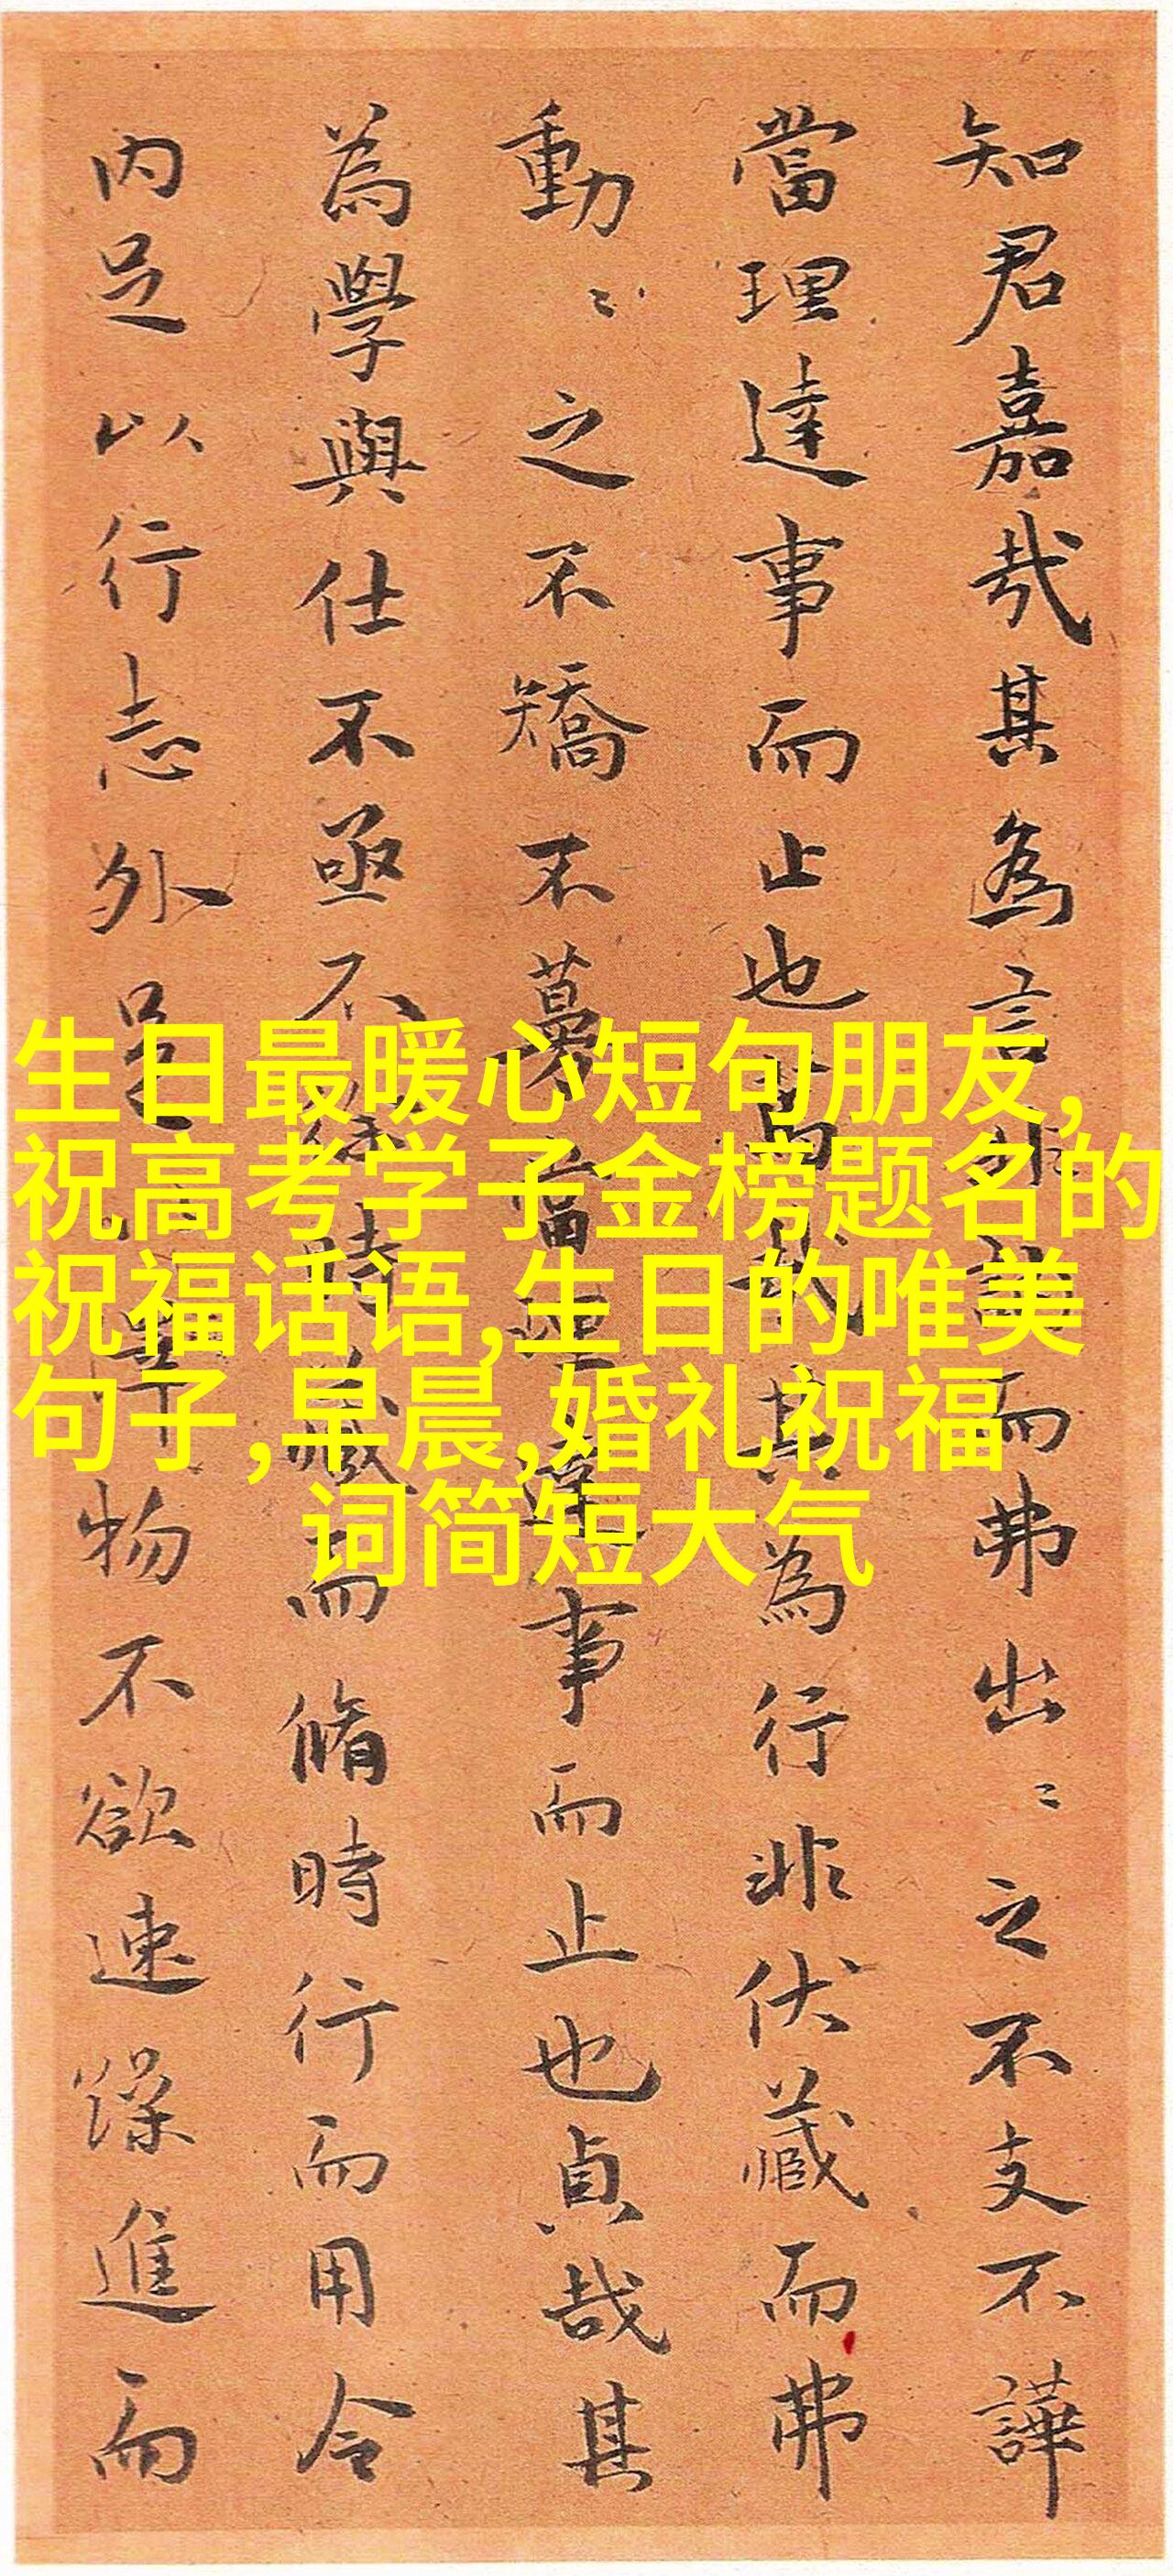 知君嘉哉其為言非而弗出〻之不支不譁
當理達事而止也哉其為行非伏藏而弗
動〻之不矯不當理達事而止也貞哉其
為學與仕不亟不時藏而脩時行而用令
内足以行志外足澤物不欲速躁進而
生日最暖心短句朋友,
祝高考学子金榜题名的
祝福话语,生日的唯美
句子,早晨,婚礼祝福
词简短大气